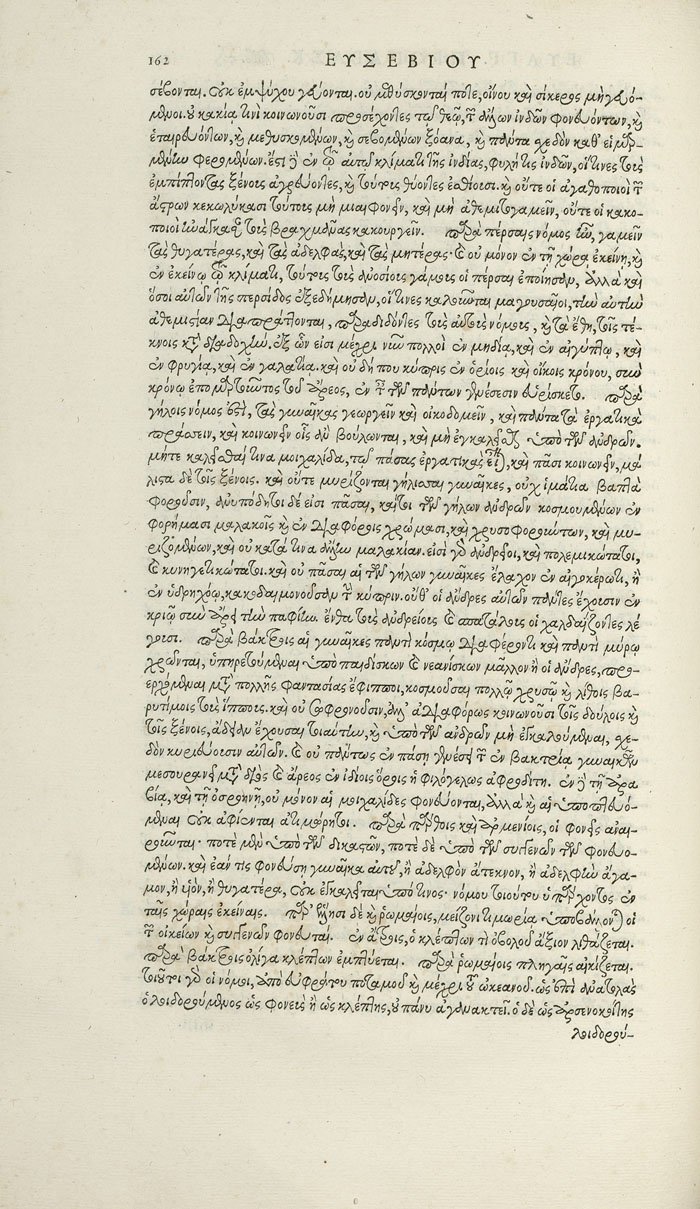 162 ΕΥΣΕΒΙΟΥ
σέβονται. οὐκ ἐμψύχου γεύονται. οὐ μεθύσκονταί ποτε, οἴνου καὶ σίκερος μὴ γευό-
μενοι. οὐ κακίᾳ τινὶ κοινωνοῦσι προσέχοντες τῷ θεῷ, τῶν ἄλλων ἰνδῶν φονευόντων, καὶ
ἑταιρευόντων, καὶ μεθυσκομένων, καὶ σεβομένων ξόανα, καὶ πάντα σχεδὸν καθ' εἱμαρ-
μένην φερομένων. ἔστι δὲ ἐν τῷ αὐτῷ κλίματι τῆς ἰνδίας, φυλή τις ἰνδῶν, οἵτινες τοὺς
ἐμπίπτοντας ξένους ἀγρεύοντες, καὶ τούτους θύοντες ἐσθίουσι. καὶ οὔτε οἱ ἀγαθοποιοὶ τῶν
ἄστρων κεκωλύκασι τούτους μὴ μιαιφονεῖν, καὶ μὴ ἀθεμιτογαμεῖν, οὔτε οἱ κακο-
ποιοὶ ἠνάγκασαν τοὺς βραχμᾶνας κακουργεῖν. παρὰ πέρσαις νόμος ἦν, γαμεῖν
τὰς θυγατέρας, καὶ τὰς ἀδελφὰς, καὶ τὰς μητέρας. καὶ οὐ μόνον ἐν τῇ χώρᾳ ἐκείνῃ, καὶ
ἐν ἐκείνῳ τῷ κλίματι, τούτους τοὺς ἀνοσίους γάμους οἱ πέρσαι ἐποίησαν, ἀλλὰ καὶ
ὅσοι αὐτῶν τῆς περσίδος ἐξεδήμησαν, οἵτινες καλοῦνται μαγουσαῖοι, τὴν αὐτὴν
ἀθεμιστίαν διαπράττονται, παραδιδόντες τοὺς αὐτοὺς νόμους, καὶ τὰ ἔθη, τοῖς τέ-
κνοις κατὰ διαδοχήν. ἐξ ὧν εἰσι μέχρι νῦν πολλοὶ ἐν μηδίᾳ, καὶ ἐν αἰγύπτῳ, καὶ
ἐν φρυγίᾳ, καὶ ἐν γαλατίᾳ. καὶ οὐ δή που κύπρις ἐν ὁρίοις καὶ οἴκοις κρόνου, σὺν
κρόνῳ ἐπιμαρτυροῦντος τοῦ ἄρεος, ἐν ταῖς τῶν πάντων γενέσεσιν εὑρίσκετο. παρὰ
γήλοις νόμος ἐστὶ, τὰς γυναῖκας γεωργεῖν καὶ οἰκοδομεῖν, καὶ πάντα τὰ ἐργατικὰ
πράσσειν, καὶ κοινωνεῖν οἷς ἂν βούλωνται, καὶ μὴ ἐγκαλεῖσθαι ὑπὸ τῶν ἀνδρῶν.
μήτε καλεῖσθαί τινα μοιχαλίδα, τῷ πάσας ἐργατικὰς εἶναι, καὶ πᾶσι κοινωνεῖν, μά-
λιστα δὲ τοῖς ξένοις. καὶ οὔτε μυρίζονται γήλισσαι γυναῖκες, οὐχ ἱμάτια βαπτὰ
φοροῦσιν, ἀνυπόδητοι δέ εἰσι πᾶσαι, καίτοι τῶν γήλων ἀνδρῶν κοσμουμένων ἐν
φορήμασι μαλακοῖς καὶ ἐν διαφόροις χρώμασι, καὶ χρυσοφορούντων, καὶ μυ-
ριζομένων, καὶ οὐ κατά τινα ἄλλην μαλακίαν. εἰσὶ γὰρ ἀνδρεῖοι, καὶ πολεμικώτατοι,
καὶ κυνηγετικώτατοι. καὶ οὐ πᾶσαι αἱ τῶν γήλων γυναῖκες ἔλαχον ἐν αἰγοκέρωτι, ἢ
ἐν ὑδρηχόῳ, κακοδαιμονοῦσαν τὴν κύπριν. οὔθ' οἱ ἄνδρες αὐτῶν πάντες ἔχουσιν ἐν
κριῷ σὺν ἄρει τὴν παφίην. ἔνθα τοὺς ἀνδρείους καὶ σπατάλους οἱ χαλδαΐζοντες λέ
γουσι. παρὰ βάκτροις αἱ γυναῖκες παντὶ κόσμῳ διαφέροντι καὶ παντὶ μύρῳ
χρῶνται, ὑπηρετούμεναι ὑπὸ παιδίσκων καὶ νεανίσκων μᾶλλον ἢ οἱ ἄνδρες, προ-
ερχόμεναι μετὰ πολλῆς φαντασίας ἔφιπποι, κοσμοῦσαι πολλῷ χρυσῷ καὶ λίθοις βα-
ρυτίμοις τοὺς ἵππους. καὶ οὐ σωφρονοῦσιν, ἀλλ' ἀδιαφόρως κοινωνοῦσι τοῖς δούλοις καὶ
τοῖς ξένοις, ἄδειαν ἔχουσαι τοιαύτην, καὶ ὑπὸ τῶν ἀνδρῶν μὴ ἐγκαλούμεναι, σχε-
δὸν κυριεύουσιν αὐτῶν. καὶ οὐ πάντως ἐν πάσῃ γενέσει τῶν ἐν βακτρίᾳ γυναικῶν
μεσουρανεῖ μετὰ διὸς καὶ ἄρεος ἐν ἰδίοις ὅροις ἡ φιλόγελως ἀφροδίτη. ἐν δὲ τῇ ἀρα
βίᾳ, καὶ τῇ ὀσρηνῇ, οὐ μόνον αἱ μοιχαλίδες φονεύονται, ἀλλὰ καὶ αἱ ὑποπτευό-
μεναι οὐκ ἀφίενται ἀτιμώρητοι. παρὰ πάρθοις καὶ ἀρμενίοις, οἱ φονεῖς ἀναι-
ροῦνται. ποτὲ μὲν ὑπὸ τῶν δικαστῶν, ποτὲ δὲ ὑπὸ τῶν συγγενῶν τῶν φονευο-
μένων. καὶ ἐάν τις φονεύσῃ γυναῖκα αὐτοῦ, ἢ ἀδελφὸν ἄτεκνον, ἢ ἀδελφὴν ἄγα-
μον, ἢ υἱὸν, ἢ θυγατέρα, οὐκ ἐγκαλεῖται ὑπό τινος. νόμου τοιούτου ὑπάρχοντος ἐν
ταῖς χώραις ἐκείναις. παρ' ἕλλησι δὲ καὶ ῥωμαίοις, μείζονι τιμωρίᾳ ὑποβάλλονται οἱ
τῶν οἰκείων καὶ συγγενῶν φονευταί. ἐν ἄτροις, ὁ κλέπτων τὶ ὀβολοῦ ἄξιον λιθάζεται.
παρὰ βάκτροις ὀλίγα κλέπτων ἐμπτύεται. παρὰ ῥωμαίοις πληγαῖς αἰκίζεται.
τοιοῦτοι γὰρ οἱ νόμοι. ἀπὸ εὐφράτου ποταμοῦ καὶ μέχρι τοῦ ὠκεανοῦ. ὡς ἐπὶ ἀνατολὰς
ὁ λοιδορούμενος ὡς φονεὺς ἢ ὡς κλέπτης, οὐ πάνυ ἀγανακτεῖ. ὁ δὲ ὡς ἀρσενοκοίτης
λοιδορού-